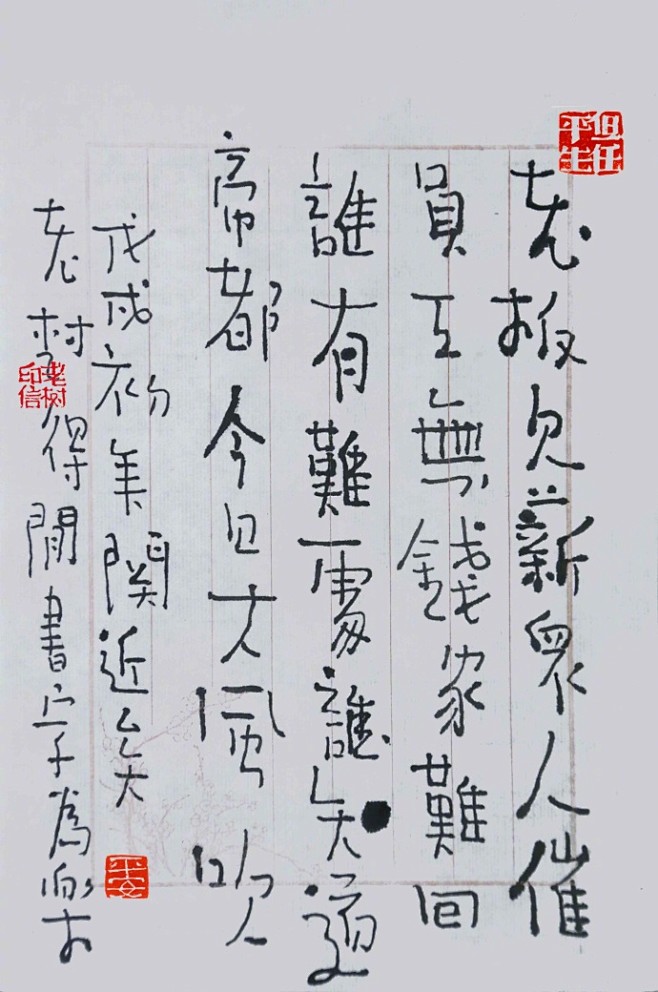 但任平生
老板薪眾人催
員工無錢家難回
誰有難處誰知道
帝都今日大風吹
戊戌初年關近矣
老樹得閒書字為
老树印信